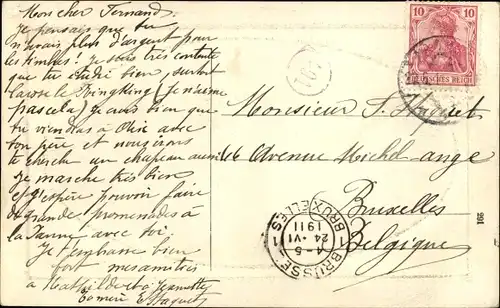 Mon cher Fernand.
Je pensais que tu
n'avais plus d'argent pour
les timbres! Je suis très contente
que tu étudie bien surtout
la
pas cela) Je sais bien que
tu viendras à avec
ton père et nous irons
te cherche un chapeau aussi
Je marche très bien
et j'espère pouvoir faire
de grande promenades à
la Panne avec toi.
Je t'embrasse bien
fort mes amitiés
à Mathilde et à Jeannette
10
10
DEUTSCHES REICH
Monsieur
16 Avenue Michel-ange
Bruxelles
Belgique
BRUSSEL 1
4-5
24 VI
1911
1 BRUXELLES
991